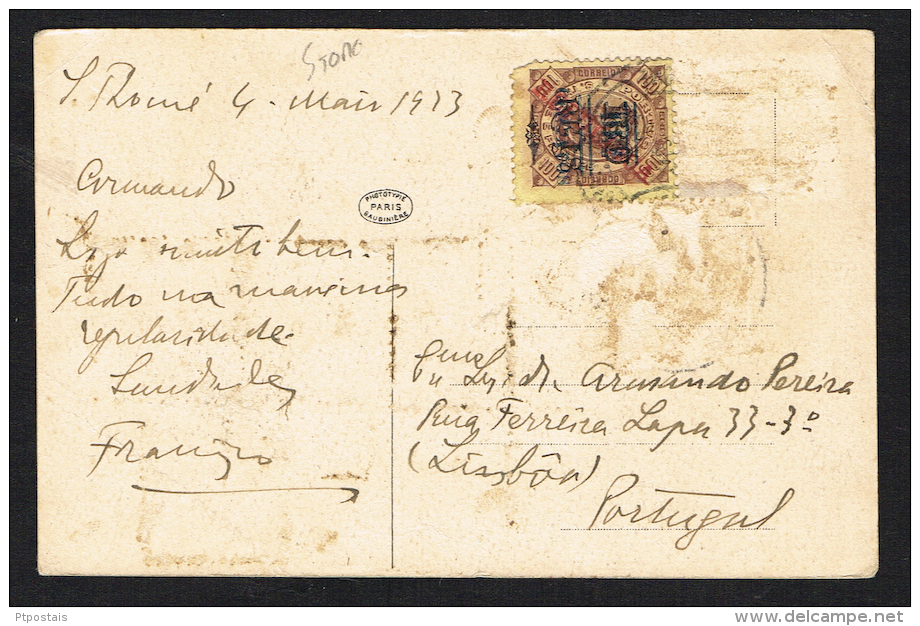 STOM
S. Thomé 4 - Maio 1913
Armando
muito bem.
Tudo na maxima
regularidade.
Saudades
PHOTOTYPIE
PARIS
BAUDINIÈRE
CORREIOS
100
Armando Pereira
Rua Ferreira Lapa 33-3º
(Lisbôa)
Portugal
Ptpostais
www.delcampe.net